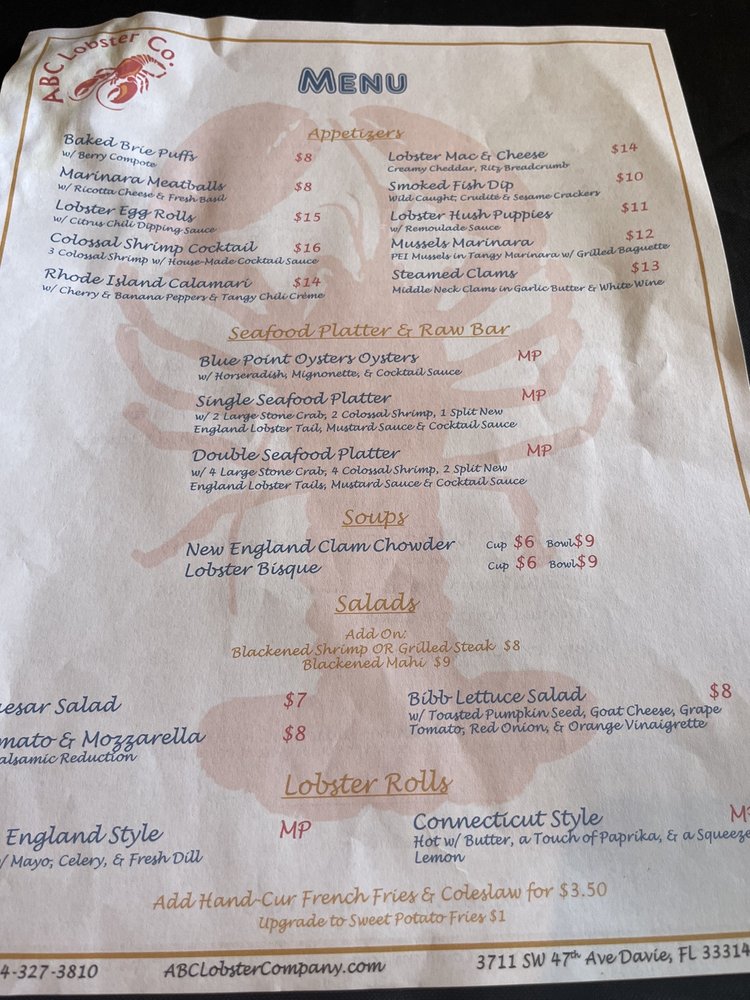 ABC Lobster Co.
MENU
Appetizers
Baked Brie Puffs $8
w/ Berry Compote
Marinara Meatballs $8
w/ Ricotta Cheese & Fresh Basil
Lobster Egg Rolls $15
w/ Citrus Chili Dipping Sauce
Colossal Shrimp Cocktail $16
3 Colossal Shrimp w/ House-Made Cocktail Sauce
Rhode Island Calamari $14
w/ Cherry & Banana Peppers & Tangy Chili Crème
Lobster Mac & Cheese $14
Creamy Cheddar, Ritz Breadcrumb
Smoked Fish Dip $10
Wild Caught; Crudite & Sesame Crackers
Lobster Hush Puppies $11
w/ Remoulade Sauce
Mussels Marinara $12
PEI Mussels in Tangy Marinara w/ Grilled Baguette
Steamed Clams $13
Middle Neck Clams in Garlic Butter & White Wine
Seafood Platter & Raw Bar
Blue Point Oysters Oysters MP
w/ Horseradish, Mignonette, & Cocktail Sauce
Single Seafood Platter MP
w/ 2 Large Stone Crab, 2 Colossal Shrimp, 1 Split New
England Lobster Tail, Mustard Sauce & Cocktail Sauce
Double Seafood Platter MP
w/ 4 Large Stone Crab, 4 Colossal Shrimp, 2 Split New
England Lobster Tails, Mustard Sauce & Cocktail Sauce
Soups
New England Clam Chowder Cup $6 Bowl $9
Lobster Bisque Cup $6 Bowl $9
Salads
Add On:
Blackened Shrimp OR Grilled Steak $8
Blackened Mahi $9
esar Salad $7
mato & Mozzarella $8
alsamic Reduction
Bibb Lettuce Salad $8
w/ Toasted Pumpkin Seed, Goat Cheese, Grape
Tomato, Red Onion, & Orange Vinaigrette
Lobster Rolls
England Style MP
w/ Mayo, Celery, & Fresh Dill
Connecticut Style M
Hot w/ Butter, a Touch of Paprika, & a Squeeze
Lemon
Add Hand-Cur French Fries & Coleslaw for $3.50
Upgrade to Sweet Potato Fries $1
4-327-3810 ABCLobsterCompany.com 3711 SW 47th Ave Davie, FL 33314